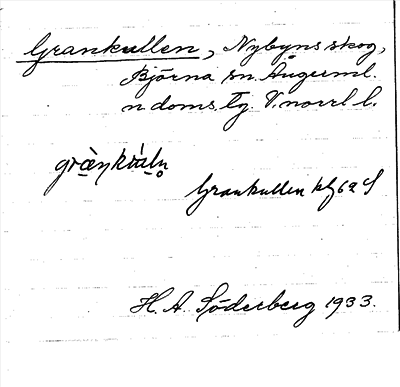 Grankullen, Nybyns skog,
Björna sn. Ångerml.
n doms. Tg. V. norrl l.
Grankullen kbl 62 S
H. A. Söderberg 1933.